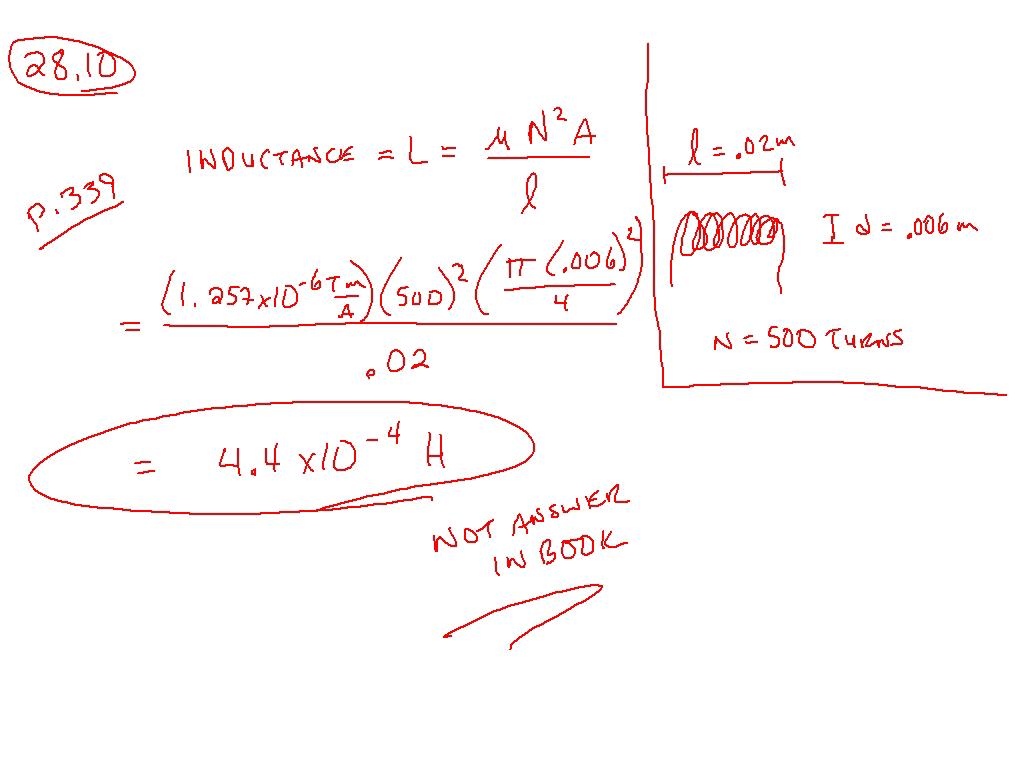 28.10
INDUCTANCE = L = μ N² A / l
P. 339
= (1.257 x10⁻⁶ T m / A) (500)² (π (.006)² / 4) / .02
= 4.4 x10⁻⁴ H
NOT ANSWER
IN BOOK
l = .02m
I d = .006 m
N = 500 TURNS